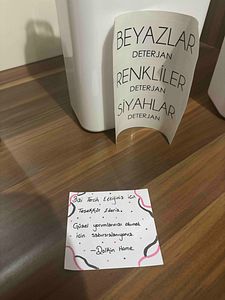 BEYAZLAR
DETERJAN
RENKLİLER
DETERJAN
SİYAHLAR
DETERJAN
Bizi Tercih Ettiğiniz için
Teşekkür Ederiz.
Güzel yorumlarınızı okumak
için sabırsızlanıyoruz.
Home